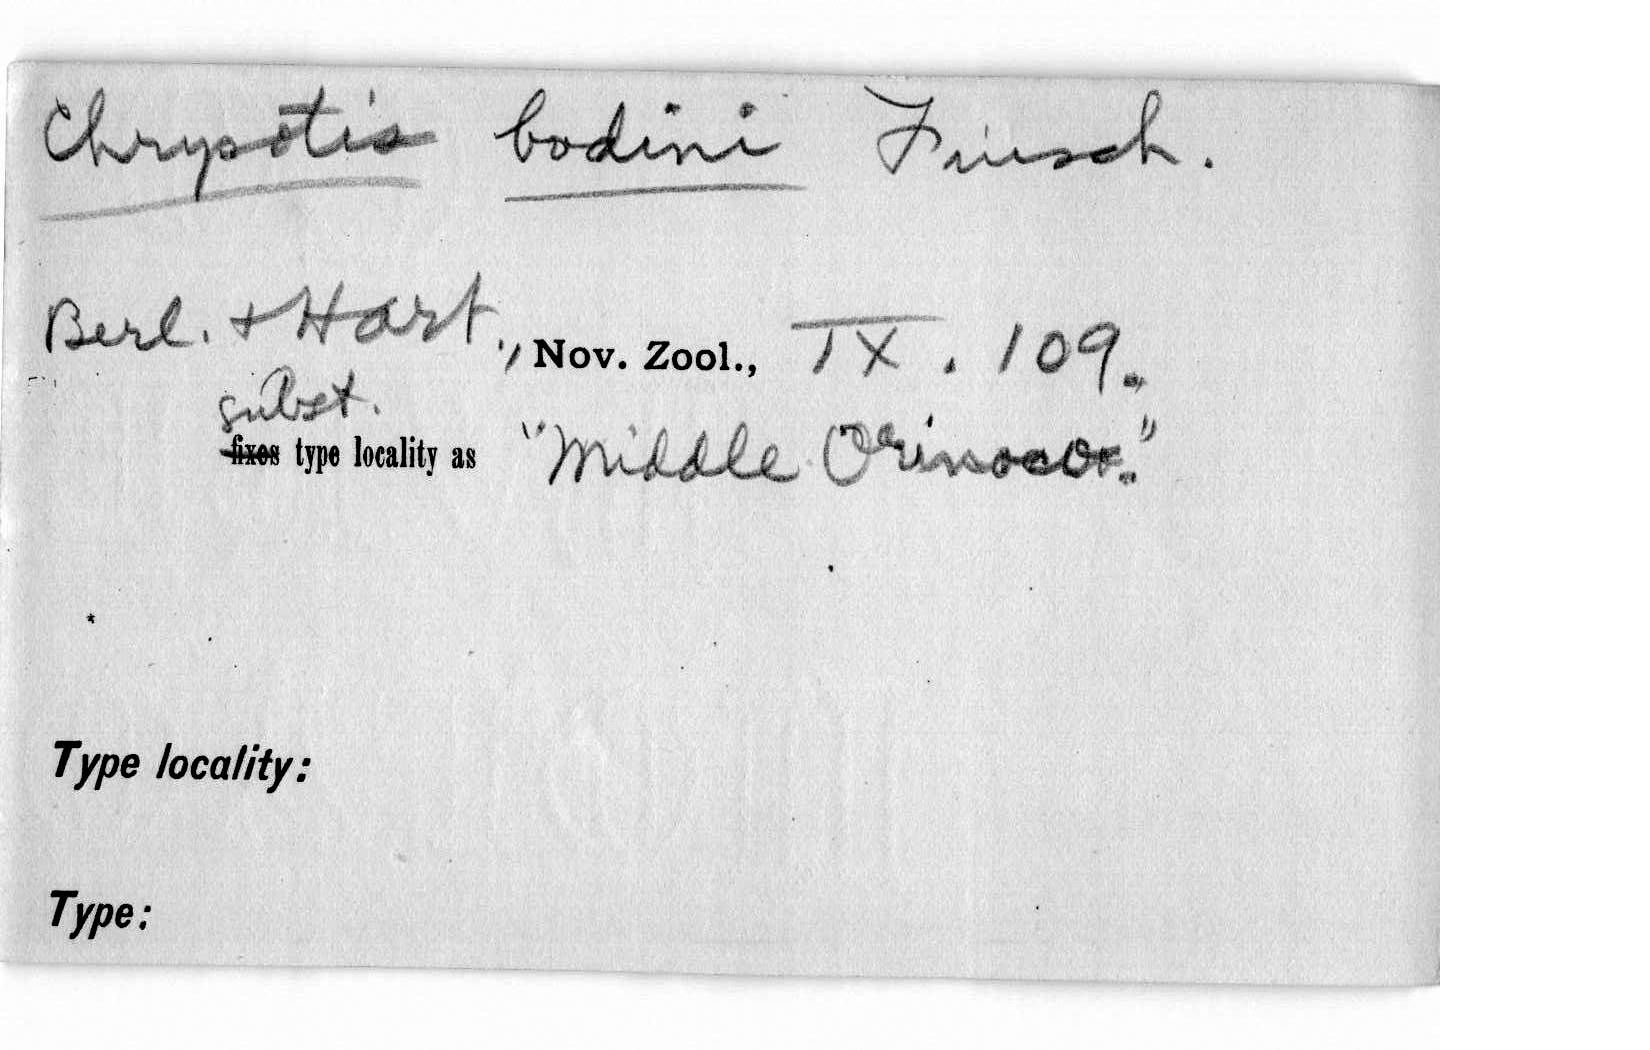 Chrysotis bodini Finsch.
Berl. + Hart., Nov. Zool., IX. 109.
subst.
fixes type locality as "Middle Orinoco."
Type locality:
Type: